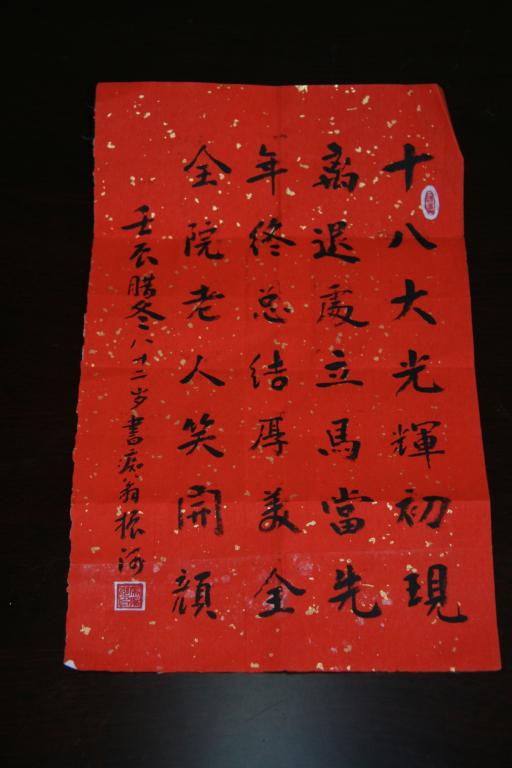 十八大光輝初現
离退處立馬當先
年終总结厚美全
全院老人笑開顔
壬辰腊冬八十二岁書痴翁振河